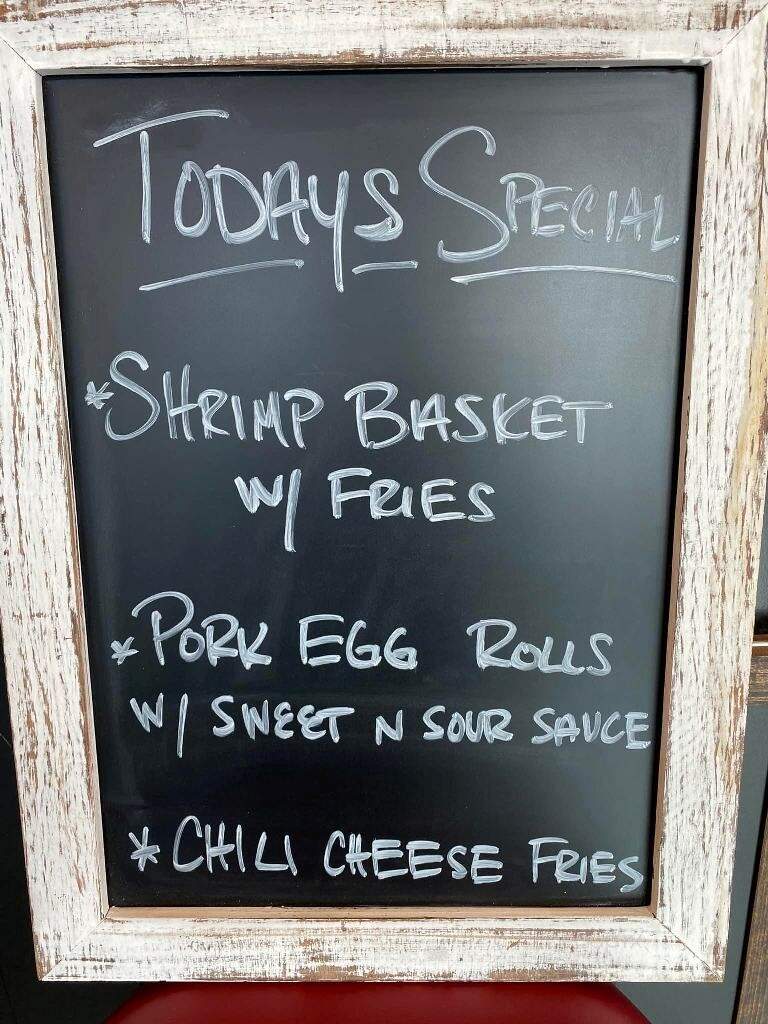 TODAYS SPECIAL
*SHRIMP BASKET
W/ FRIES
*PORK EGG ROLLS
W/ SWEET N SOUR SAUCE
*CHILI CHEESE FRIES